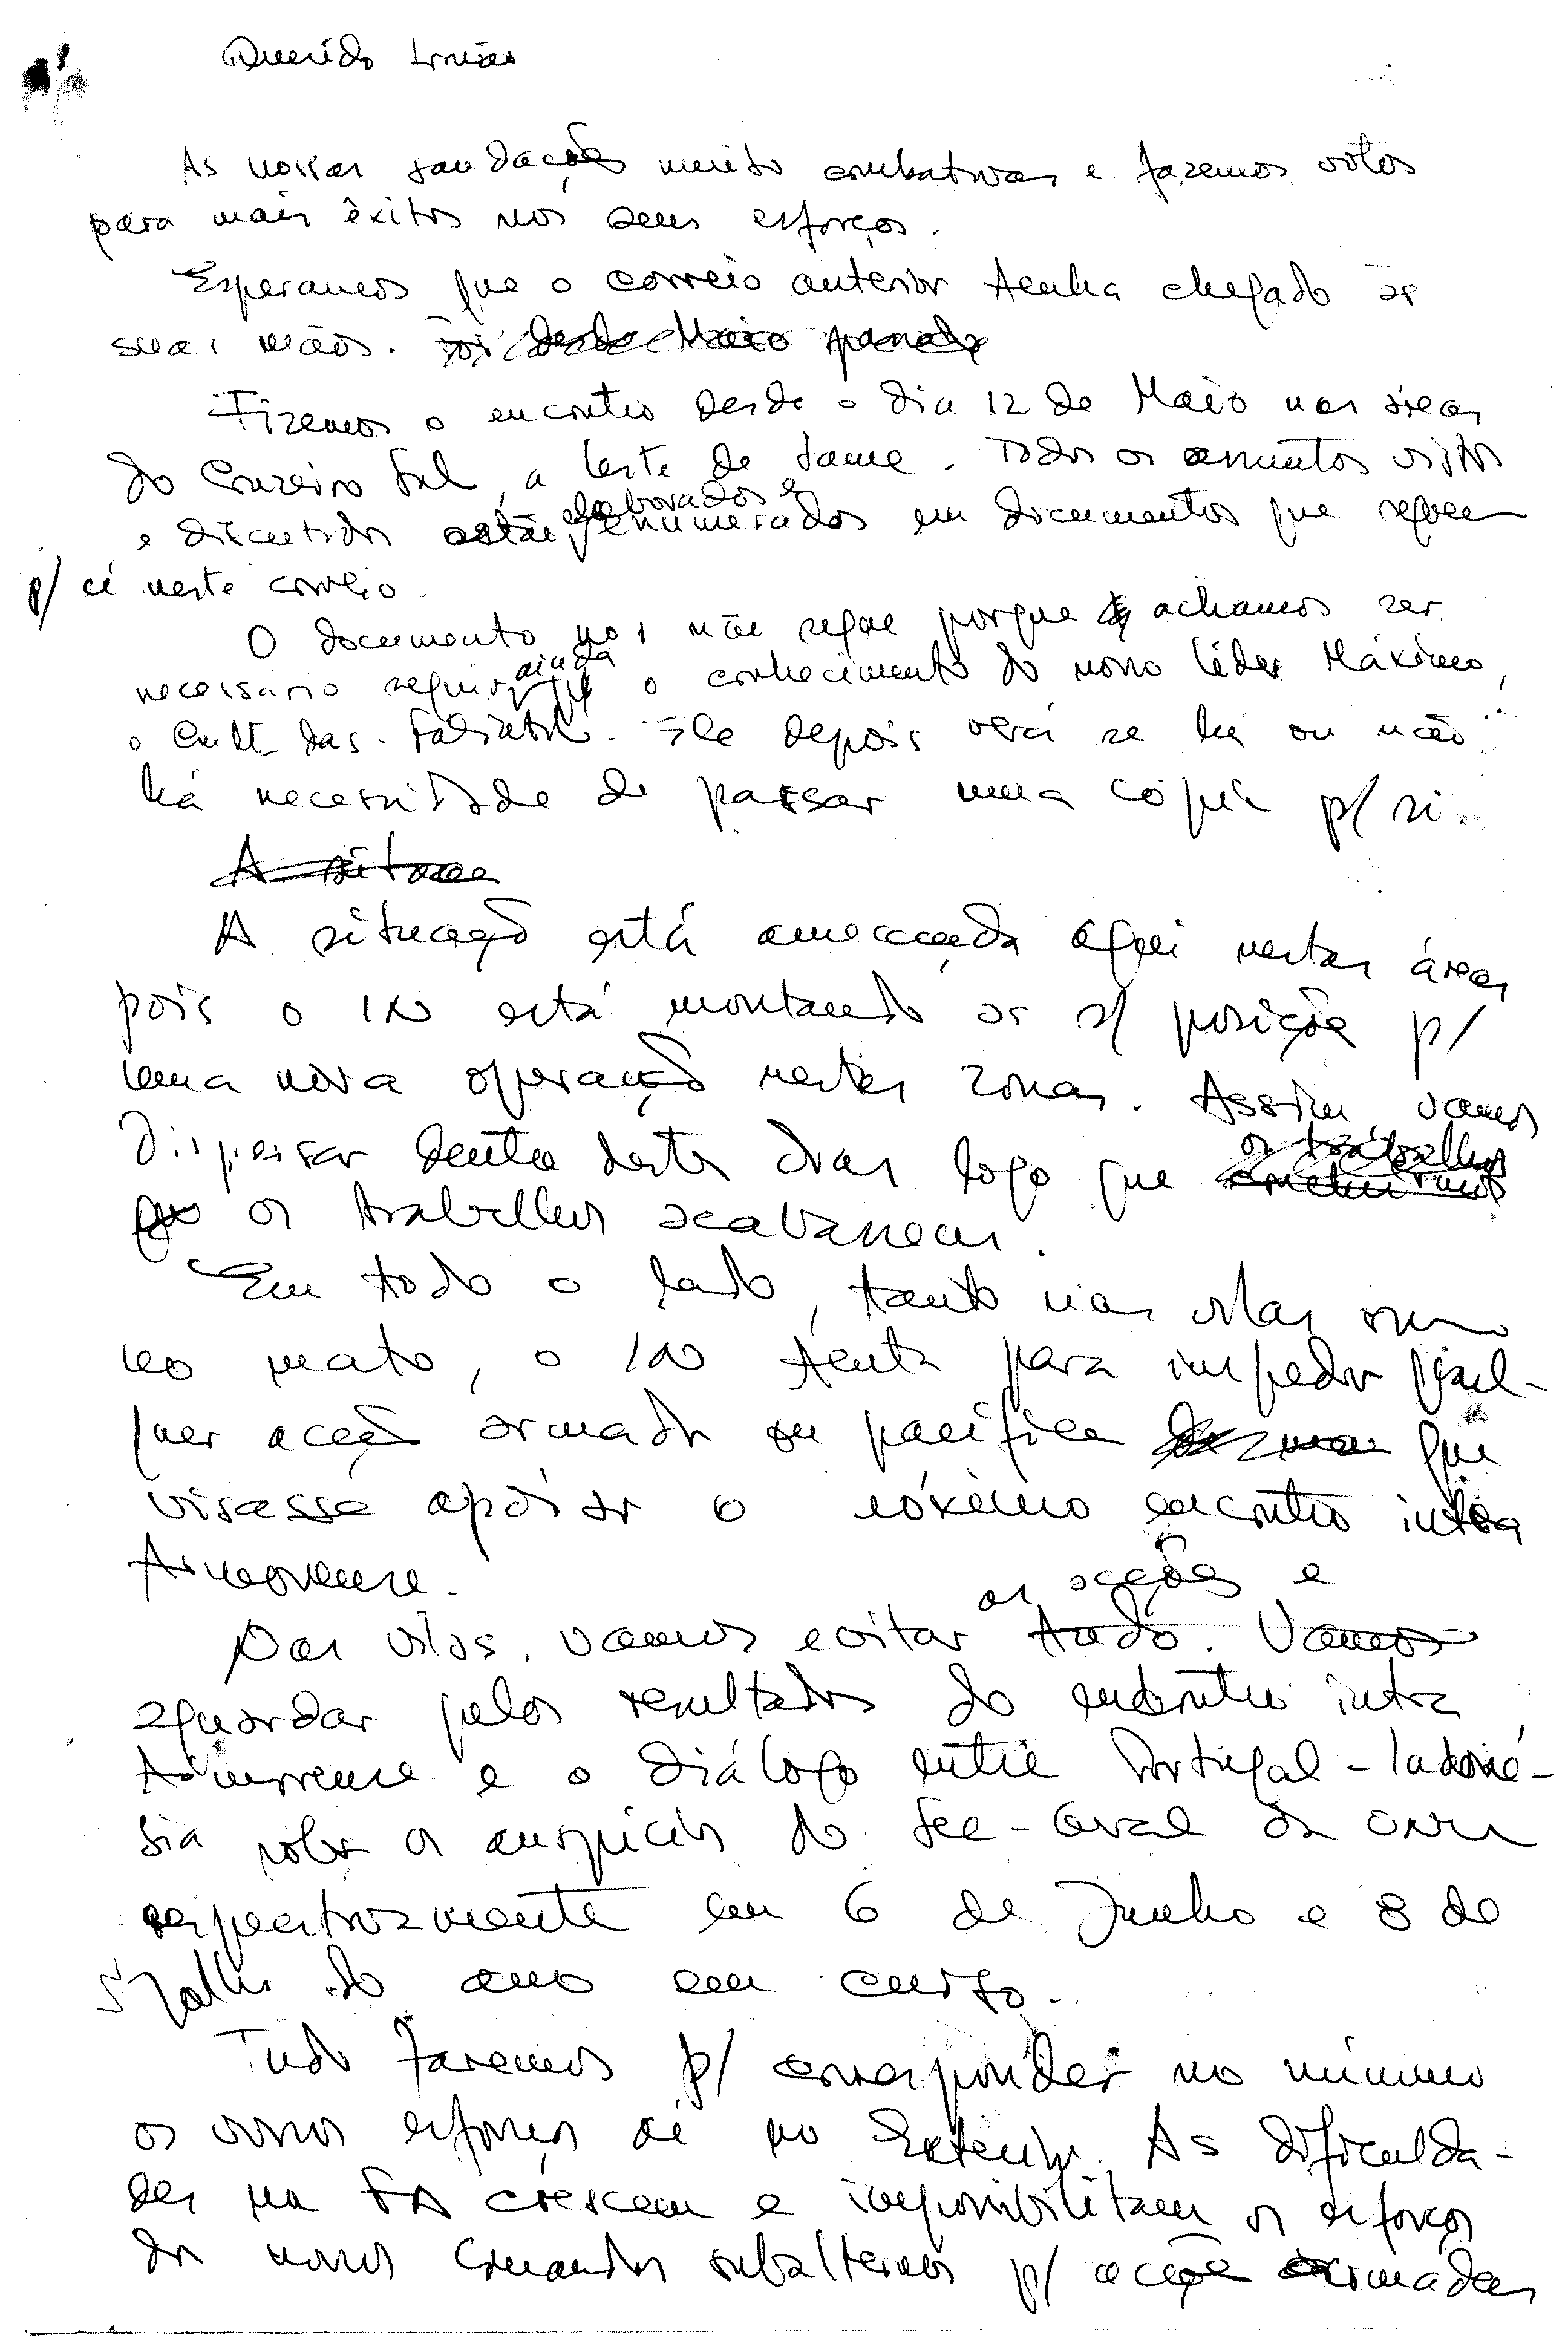 Querido Irmão
As nossas saudações muito combativas e fazemos votos
para mais êxitos nos seus esforços.
Esperamos que o correio anterior tenha chegado às
suas mãos. Foi desde Maio
Fizemos o encontro desde o dia 12 de Maio nas áreas
do Cruzeiro Sul, a leste de Same. Todos os assuntos vistos
e discutidos estão elaborados e enumerados em documentos que seguem
p/ aí neste correio.
O documento no 1 não segue porque achamos ser
necessário seguir ainda o conhecimento do nosso líder Máximo,
o Cmdt das Falintil. Ele depois verá se há ou não
há necessidade de passar uma cópia p/ si.
A situac
A situação está ameaçada aqui nestas áreas
pois o IN está montando as s/ posições p/
uma nova operação nestas zonas. Assim vamos
dispersar dentro destes dias logo que os trabalhos
os trabalhos acabassem.
Em todo o lado, tanto nas vilas como
no mato, o IN tenta para impedir qual-
quer acção armada ou pacífica que
visasse apoiar o próximo encontro intra
timorense.
Nas vilas, vamos evitar tudo. as acções e Vamos
aguardar pelos resultados do encontro intra
timorense e o diálogo entre Portugal-Indoné-
sia sobre os auspícios do Sec-Geral da ONU
respectivamente em 6 de Junho e 8 de
Julho do ano em curso.
Tudo faremos p/ corresponder no mínimo
os vossos esforços aí no Exterior. As dificulda-
des na FA crescem e impossibilitam os esforços
dos nossos Comandos subalternos p/ acções armadas